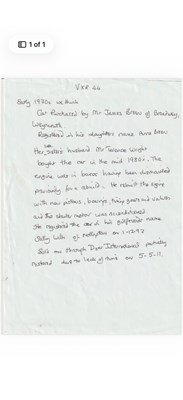 1 of 1
VXR 44
Early 1970s we think
Car Purchased by Mr James Brew of Broadway,
Weymouth.
Registered in his daughters name Anne Brew
Her sisters husband Mr Terence Wright
bought the car in the mid 1980s. The
engine was in boxes having been dismantled
previously for a rebuild. He rebuilt the engine
with new pistons, bearings, timing gears and valves
and the starter motor was reconditioned.
He registered the car in his girlfriends name
Sally with of on 1-12-92
Sold on through Dyer International partially
restored due to lack of time on 5-5-11.